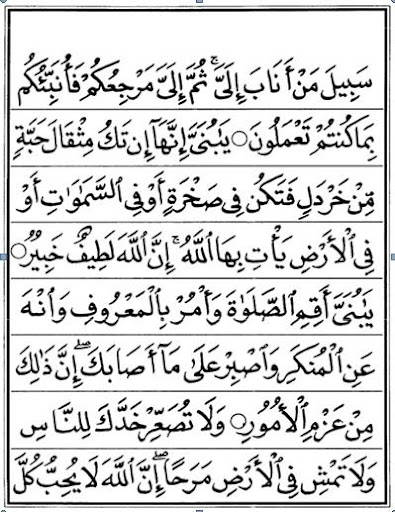 سَبِيلَ مَنْ أَنَابَ إِلَيَّ ۚ ثُمَّ إِلَيَّ مَرْجِعُكُمْ فَأُنَبِّئُكُم
بِمَا كُنتُمْ تَعْمَلُونَ ۝ يَٰبُنَيَّ إِنَّهَآ إِن تَكُ مِثْقَالَ حَبَّةٍ
مِّنْ خَرْدَلٍ فَتَكُن فِي صَخْرَةٍ أَوْ فِي ٱلسَّمَٰوَٰتِ أَوْ
فِي ٱلْأَرْضِ يَأْتِ بِهَا ٱللَّهُ ۚ إِنَّ ٱللَّهَ لَطِيفٌ خَبِيرٌ ۝
يَٰبُنَيَّ أَقِمِ ٱلصَّلَوٰةَ وَأْمُرْ بِٱلْمَعْرُوفِ وَٱنْهَ
عَنِ ٱلْمُنكَرِ وَٱصْبِرْ عَلَىٰ مَآ أَصَابَكَ ۖ إِنَّ ذَٰلِكَ
مِنْ عَزْمِ ٱلْأُمُورِ ۝ وَلَا تُصَعِّرْ خَدَّكَ لِلنَّاسِ
وَلَا تَمْشِ فِي ٱلْأَرْضِ مَرَحًا ۖ إِنَّ ٱللَّهَ لَا يُحِبُّ كُلَّ